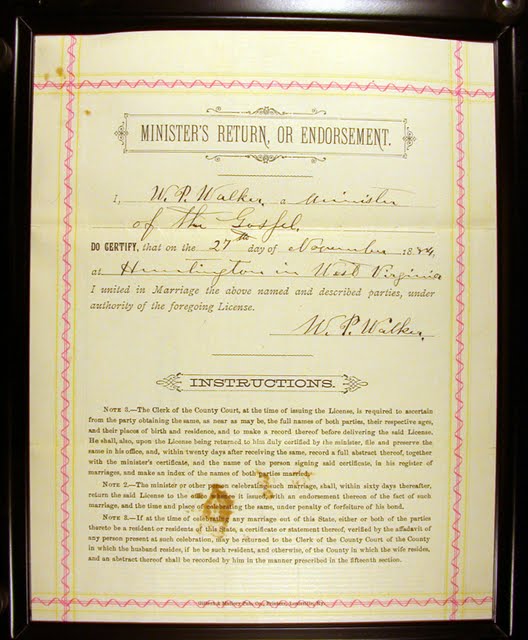 MINISTER'S RETURN, OR ENDORSEMENT.
I, W. P. Walker, a Minister
of the Gospel,
DO CERTIFY, that on the 27th day of November 1884,
at Huntington in West Virginia
I united in Marriage the above named and described parties, under
authority of the foregoing License.
W. P. Walker.
INSTRUCTIONS.
NOTE 3.—The Clerk of the County Court, at the time of issuing the License, is required to ascertain
from the party obtaining the same, as near as may be, the full names of both parties, their respective ages,
and their places of birth and residence, and to make a record thereof before delivering the said License.
He shall, also, upon the License being returned to him duly certified by the minister, file and preserve the
same in his office, and, within twenty days after receiving the same, record a full abstract thereof, together
with the minister's certificate, and the name of the person signing said certificate, in his register of
marriages, and make an index of the names of both parties married.
NOTE 2.—The minister or other person celebrating such marriage, shall, within sixty days thereafter,
return the said License to the office where it issued with an endorsement thereon of the fact of such
marriage, and the time and place of celebrating the same, under penalty of forfeiture of his bond.
NOTE 3.—If at the time of celebrating any marriage out of this State, either or both of the parties
thereto be a resident or residents of this State, a certificate or statement thereof, verified by the affadavit of
any person present at such celebration, may be returned to the Clerk of the County Court of the County
in which the husband resides, if he be such resident, and otherwise, of the County in which the wife resides,
and an abstract thereof shall be recorded by him in the manner prescribed in the fifteenth section.